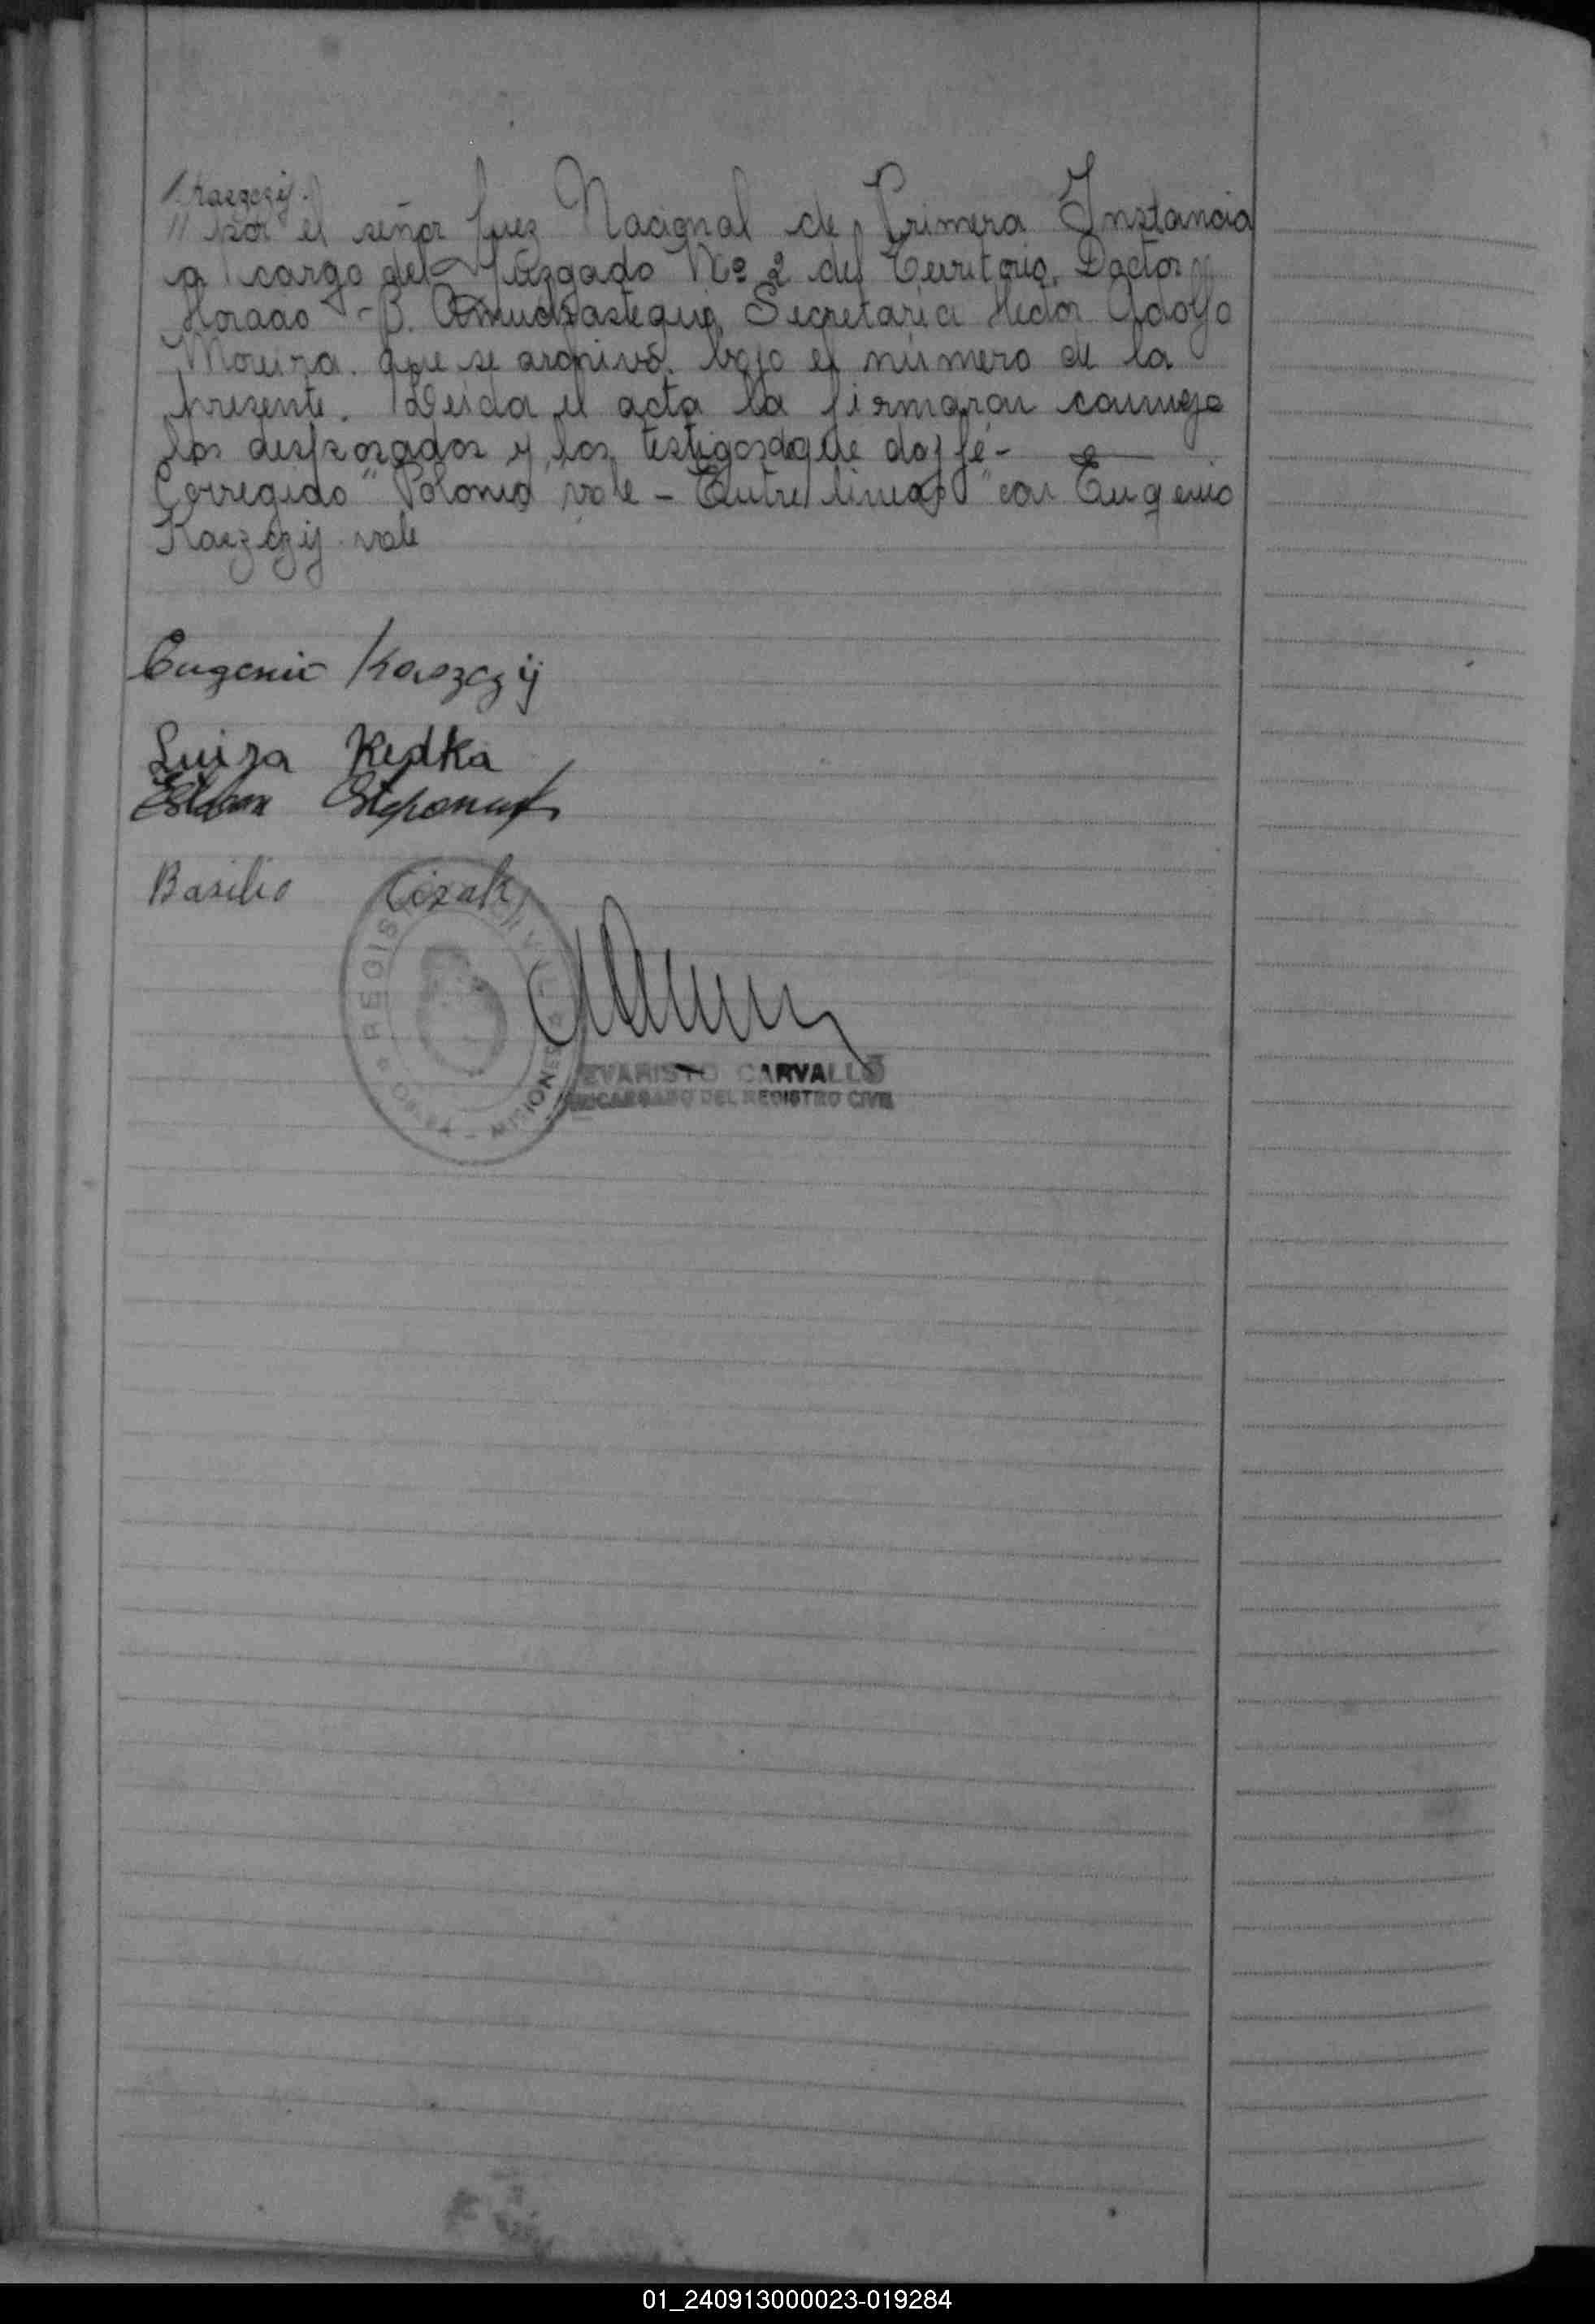 Kaezczij.
// por el señor Juez Nacional de Primera Instancia
a cargo del Juzgado Nº 2 del Territorio, Doctor
Horacio B. Amuchastegui, Secretaria Hector Adolfo
Moreira. que se archivó. bajo el número de la
presente. Leida el acta la firmaron conmigo
los desposados y los testigos de que doy fé -
Corregido "Polonia" vale - Entre lineas "con Eugenio
Kaezczij. vale
Eugenio Kaezczij
Luiza Kedka
Esteban
Basilio Cizak
REGISTRO CIVIL
OBERA - MISIONES
EVARISTO CARVALLO
ENCARGADO DEL REGISTRO CIVIL
01_240913000023-019284